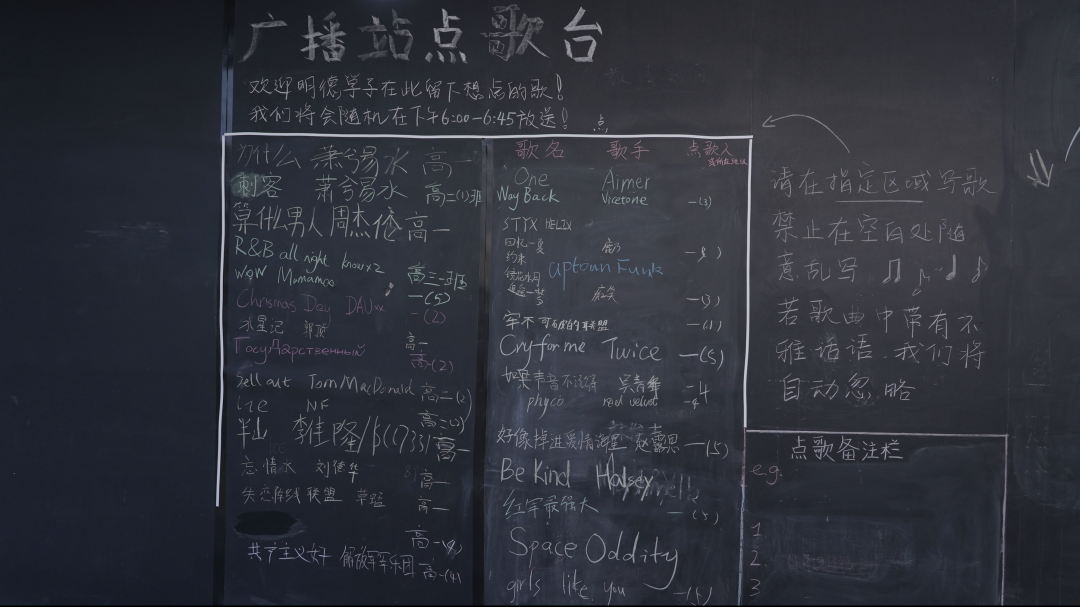 广播站点歌台
欢迎明德学子在此留下想点的歌!
我们将会随机在下午6:00-6:45放送!
点
为什么 萧兮易水 高一
刺客 萧兮易水 高二(1)班
算什么男人 周杰伦 高一
R&B all night knowx2 高三一班
wow Mamamoo 一(5)
Chrismas Day DAUxx 一(2)
水星记 郭顶 高一
Государственный 高一(2)
Sell out Tom MacDonald 高二(2)
NF 高二(1)
半山 高一
忘情水 刘德华 高一
失恋阵线联盟 草蜢 高一
高一(4)
共产主义好 解放军军乐团 高一(4)
歌名 歌手 点歌人
One Aimer
Way Back Vicetone 一(3)
STYX HELIX
回忆一夏
约束
镜花水月
Uptown Funk
遥遥一梦 一(3)
牢不可破的联盟 一(1)
Cry for me Twice 一(5)
如果声音不记得 吴青峰 二4
phyco red velvet 二4
好像掉进爱情海里 赵露思 一(5)
Be Kind Halsey
红军最强大 一(5)
Space Oddity
girls like you 一(5)
请在指定区域写歌
禁止在空白处随
意乱写 ♫ ♪ ♩ ♪
若歌曲中带有不
雅话语,我们将
自动忽略
点歌备注栏
e.g.
1
2.
3